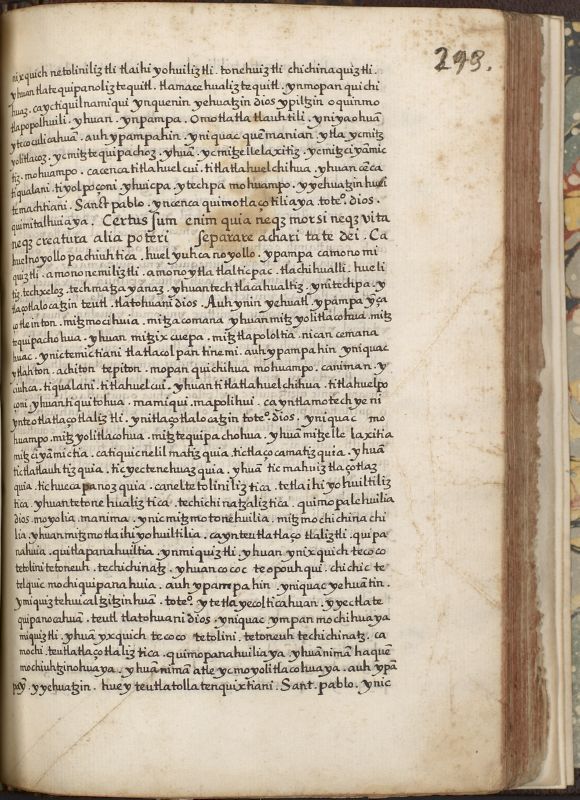 293.
nixquich netoliniliztli tlaihiyohuiliztli . tonehuiztli chichinaquiztli .
yhuan tlatequipanoliztequitl . tlamacehualiztequitl . ynmopan quichi
huaz . ca yctiquilnamiqui ynquenin . yehuatzin dios ypiltzin oquinmo
tlapopolhuili . yhuan . ynpampa . Omotlatlatlauhtili . yniyaohuā
yteco culicahuā . auh ypampahin . yniquac quēmanian . ytla ycmitz
yolitlacoz . ycmitztequipachoz . yhuā . ycmitzellelaxitiz . ycmitzciyamic
tiz . mohuampo . ca cenca titlahuelcui . titlatlahuelchihua . yhuan cēca
tiqualani . tiyolpoçoni yhuicpa . ytechpa mohuampo . yyehuatzin huei
temachtiani . Sanct pablo . yncenca quimotlaçotiliaya toteº. dios .
quimitalhuiaya . Certus sum enim quia neqz mors i neqz vita
neqz creatura alia poteri separare a chari tate dei . Ca
huelnoyollo pachiuhtica . huel yuhca noyollo . ypampa camono mi
quiztli . amono nemiliztli . amono ytla tlalticpac . tlachihualli . hueli
tiz . techxeloz . techmatzayanaz . yhuan techtlacahualtiz . ynitechpa . y
tlaçotlalocatzin teutl . tlatohuani dios . Auh ynin yehuatl ypampa yça
çotle in ton . mitzmocihuia . mitzacomana yhuan mitzyolitlacohua . mitz
tequipachohua . yhuan mitzixcuepa . mitztlapololtia . nican cemana
huac . ynictemictiani tlatlacolpan tinemi . auh ypampahin yniquac
ytlahton . achiton tepiton . mopan quichihua mohuampo . caniman . y
ciuhca . tiqualani . titlahuelcui . yhuan titlatlahuelchihua . titlahuelpo
çoni . yhuan tiquitohua . mamiqui . mapolihui . cayntlamotechyeni
ynteotlatlaçotlaliztli . ynitlaçotlalocatzin toteº. dios . yniquac mo
huampo . mitzyolitlacohua . mitztequipachohua . yhuā mitzelle laxitia
mitzciyamictia . catiquicnelilmatizquia . tictlaçocamatizquia . yhuā
tictlatlauhtizquia . ticyectenehuazquia . yhuā ticmahuiztlaçotlaz
quia . tichuecapanozquia . caneltetoliniliztica . tetlaihiyohuiltiliz
tica . yhuan tetonehualiztica . techichinatzaliztica . quimopalehuilia
dios . moyolia . manima . ynic mitzmotonehuilia . mitzmochichinachi
lia . yhuan mitzmotlaihiyohuiltilia . cayn teutlatlaçotlaliztli . quipa
nahuia . quitlapanahuiltia . ynmiquiztli . yhuan . ynixquich tecoco
tetolini tetoneuh . techichinatz . yhuan cococ teopouhqui . chichic te
telquic mochi quipanahuia . auh ypampahin . yniquac yehuātin .
ymiquiztehuicaltzitzinhuā . toteº. yytetlayecolticahuan . yyectlate
quipanocahuā . teutl tlatohuani dios . yniquac ympan mochihuaya
miquiztli . yhuā yxquich tecoco tetolini . tetoneuh techichinatz . ca
mochi . teutlatlaçotlaliztica . quimopanahuiliaya . yhuā nimā haquē
mochiuhtzinohuaya . yhuā nimā atle ycmoyolitlacohuaya . auh ypā
pay . yyehuatzin . huey teutlatollatenquixtiani . Sant . pablo . ynic